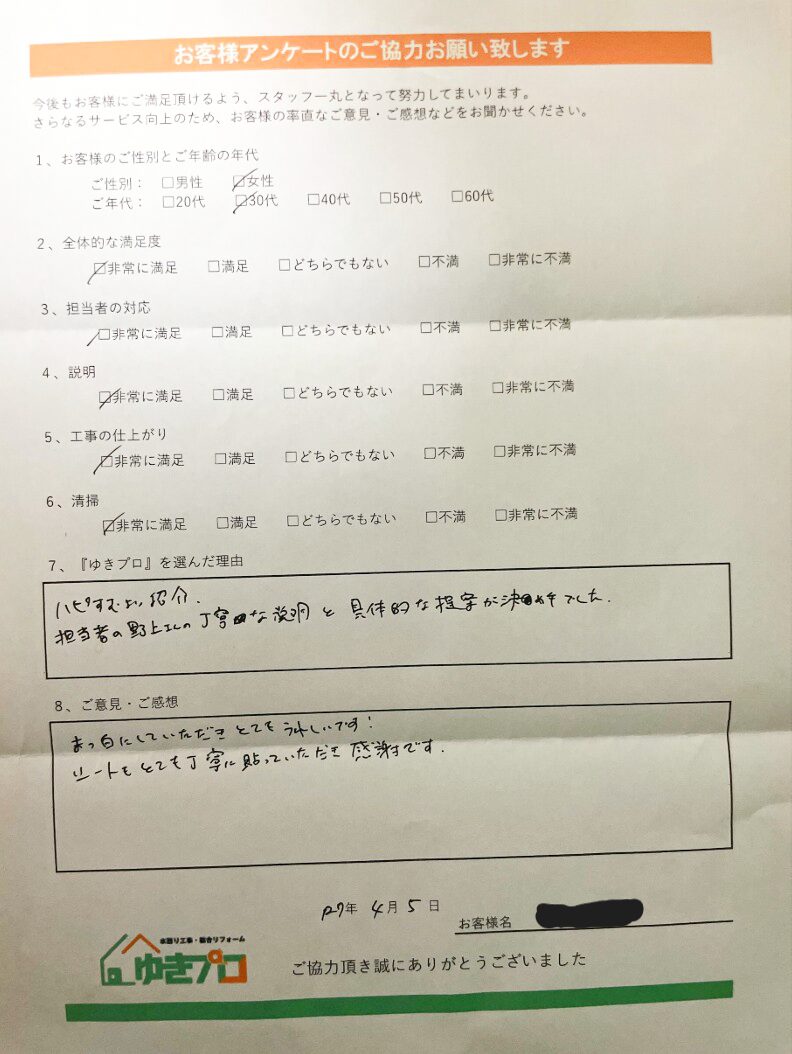 お客様アンケートのご協力お願い致します
今後もお客様にご満足頂けるよう、スタッフ一丸となって努力してまいります。
さらなるサービス向上のため、お客様の率直なご意見・ご感想などをお聞かせください。
1、お客様のご性別とご年齢の年代
ご性別： □男性 ☑女性
ご年代： □20代 ☑30代 □40代 □50代 □60代
2、全体的な満足度
☑非常に満足 □満足 □どちらでもない □不満 □非常に不満
3、担当者の対応
☑非常に満足 □満足 □どちらでもない □不満 □非常に不満
4、説明
☑非常に満足 □満足 □どちらでもない □不満 □非常に不満
5、工事の仕上がり
☑非常に満足 □満足 □どちらでもない □不満 □非常に不満
6、清掃
☑非常に満足 □満足 □どちらでもない □不満 □非常に不満
7、『ゆきプロ』を選んだ理由
ハピすむより紹介.
担当者の野上さんの丁寧な説明と具体的な提案が決め手でした.
8、ご意見・ご感想
まっ白にしていただきとてもうれしいです!
シートもとても丁寧に貼っていただき感謝です.
R7年 4月 5日
お客様名
水廻り工事・総合リフォーム
ゆきプロ
ご協力頂き誠にありがとうございました